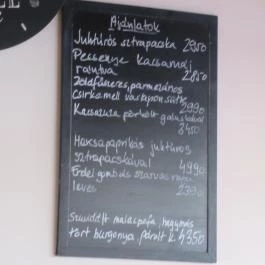 Ajánlatok
Juhtúrós sztrapacska 2950
Pecsenye kacsamáj
rántva 2850
Zöldfűszeres, parmezános
Csirkemell vaslapon sütve
2990
Kacsazúza pörkölt galuskával
3450
Harcsapaprikás juhtúrós
sztrapacskával 4990
Erdei gombás szarvas ragu
leves 2390
malacpofa, hagymás
tört burgonya, párolt k. 4350